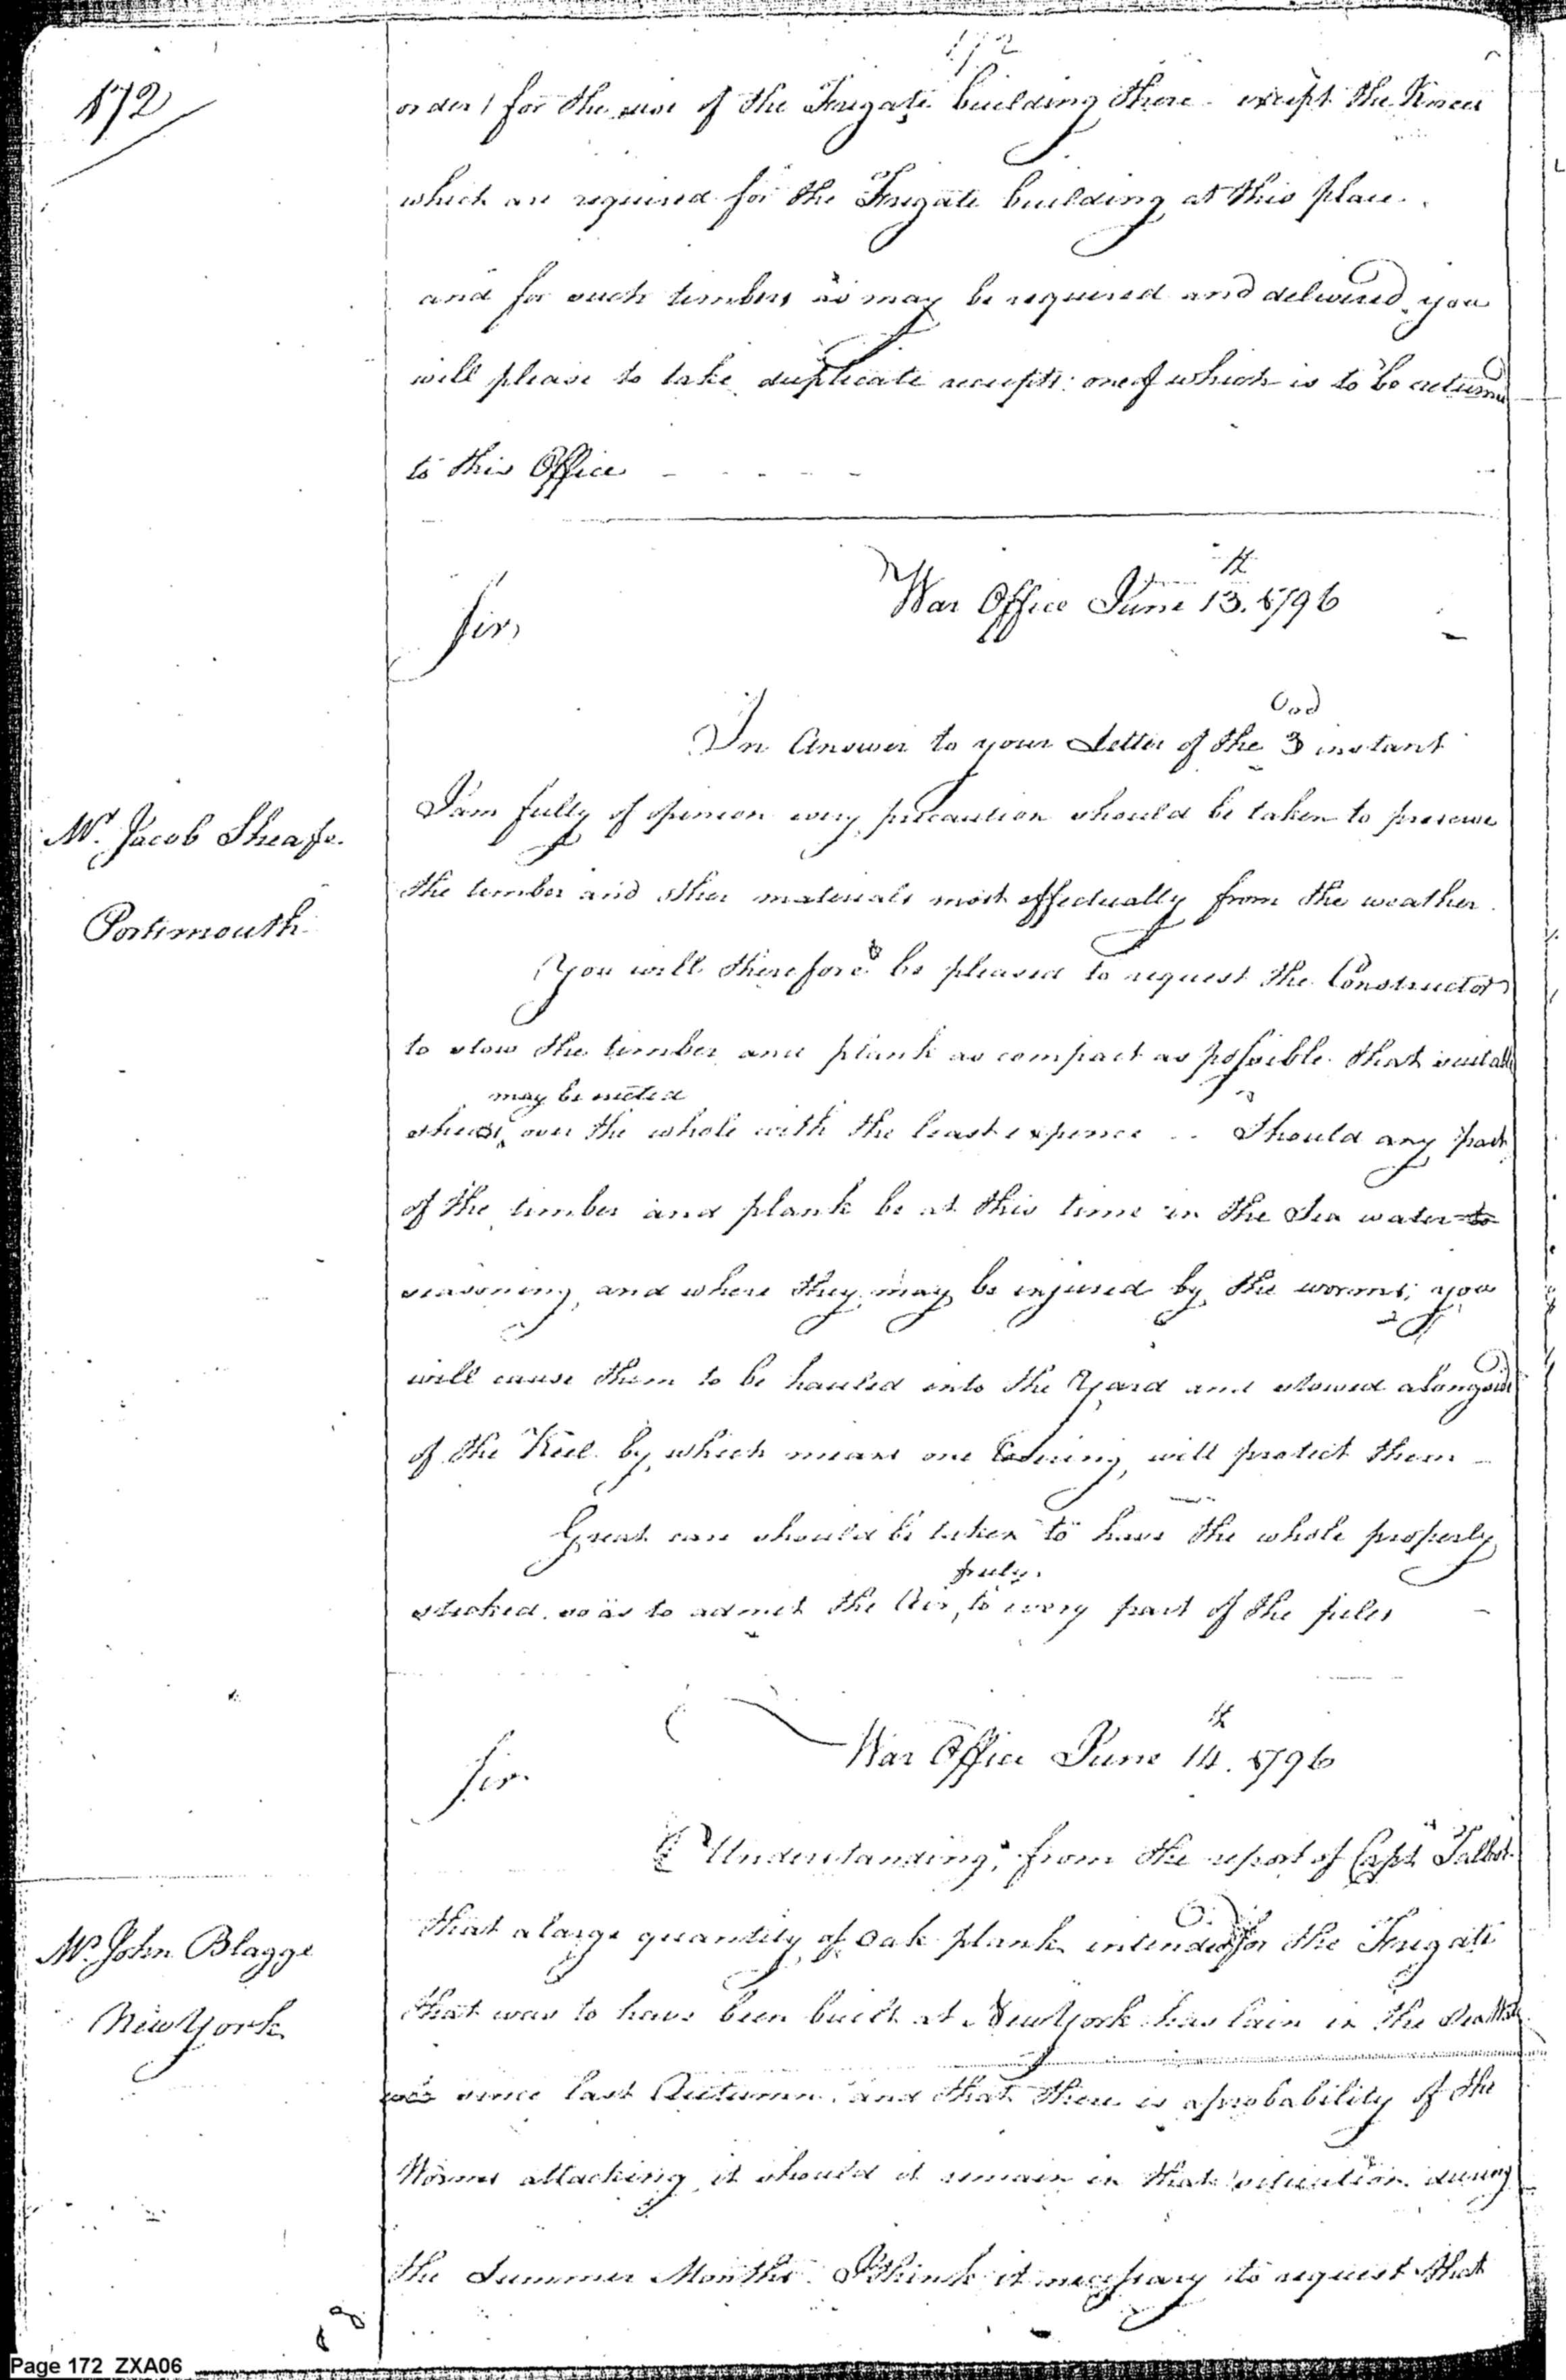 172
172
order) for the use of the Frigate building there except the Knees
which are required for the Frigate building at this place.
and for such timbers as may be required and delivered you
will please to take duplicate receipts: one of which is to be returned
to this Office
War Office June 13th. 1796
Sir,
In Answer to your Letter of the 3d instant
Mr. Jacob Sheafe.
Portsmouth
I am fully of opinion every precaution should be taken to preserve
the timber and other materials most effectually from the weather.
You will therefore be pleased to request the Constructor
to stow the timber and plank as compact as possible that suitable
may be erected
sheds, over the whole with the least expence .. Should any part
of the timber and plank be at this time in the Sea water to
seasoning, and where they may be injured by the worms; you
will cause them to be hauled into the Yard and stowed alongside
of the Keel by which means one Covering will protect them
Great care should be taken to have the whole properly
freely.
sticked. so as to admit the Air, to every part of the piles
War Office June 14th. 1796
Sir.
Understanding, from the report of Capt Talbot
Mr. John Blagge
New York
that a large quantity of Oak plank intended for the Frigate
that was to have been built at New York has lain in the
since last Autumn. and that there is a probability of the
Worms attacking it should it remain in that situation during
the Summer Months. I think it necessary to request that
Page 172 ZXA06